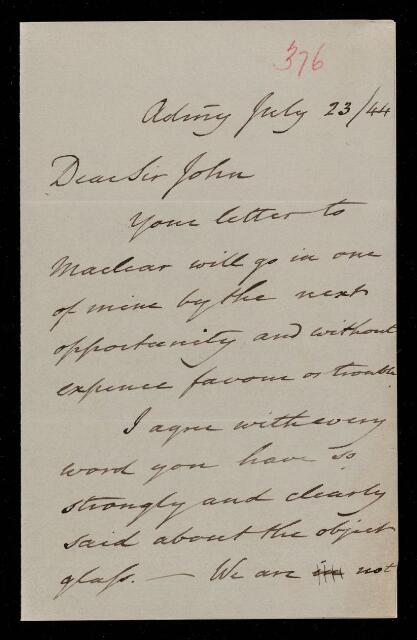 376
Admy July 23/44
Dear Sir John
Your letter to
Maclear will go in one
of mine by the next
opportunity and without
expence favour or trouble.
I agree with every
word you have so
strongly and clearly
said about the object
glass. — We are in not